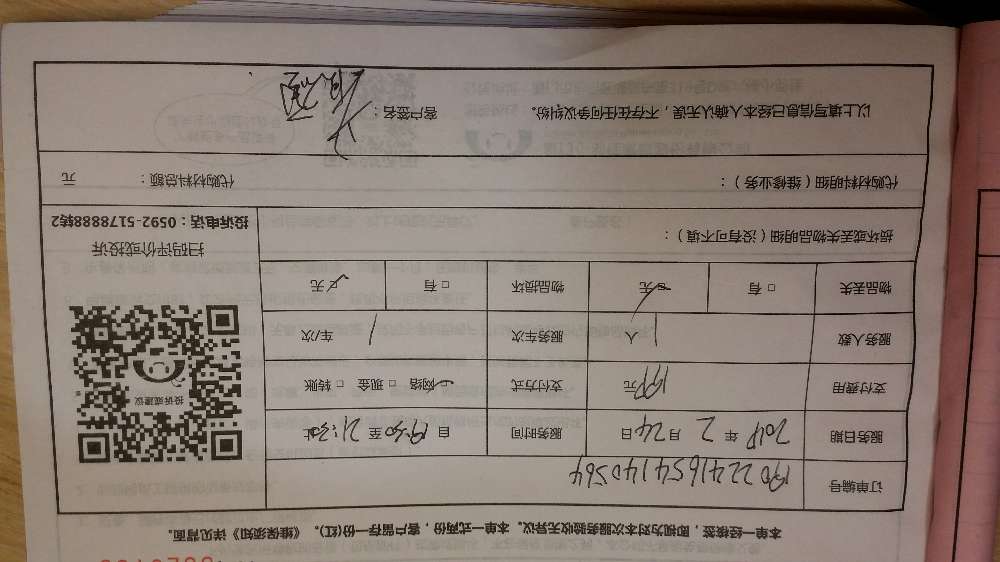 本单一经接签，即视为对本次服务验收无异议。本单一式两份，客户留存一份(红)。《维保须知》详见背面。
订单编号
服务日期 年 2 月 24 日 服务时间 自 19:30 至 21:30 止
支付费用 199 元 支付方式 网络 □ 现金 □ 转账
服务人数 1 人 服务车次 1 车/次
物品丢失 □ 有 □ 无 物品损坏 □ 有 □ 无
投诉或建议
扫码评价或投诉
投诉电话：0592-5178888转2
损坏或丢失物品明细（没有可不填）：
代购材料明细（维修业务）： 代购材料总额： 元
以上填写信息已经本人确认无误，不存在任何争议纠纷。 客户签名：